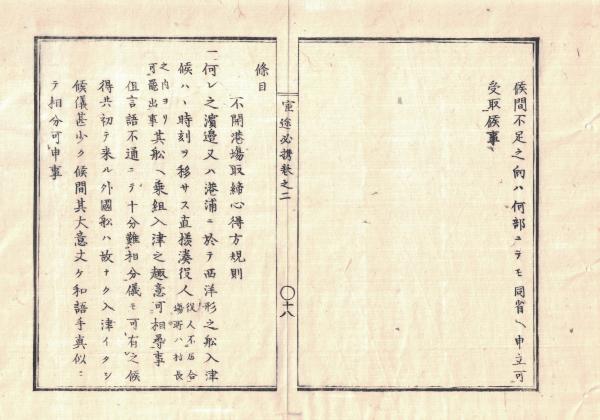 候間不足之向ハ何部ニテモ同省ヘ申立可
受取候事
宣途必携巻之二
〇十八
條目
不開港場取締心得方規則
一何レ之濱邊又ハ港浦ニ於テ西洋形之船入津
候ハヽ時刻ヲ移サス直様湊役人役人不居合場所ハ村長
之内ヨリ其船ヘ乗組入津之趣意可相尋事
可罷出事
但言語不通ニテ十分難相分儀モ可有之候
得共初テ来ル外國船ハ故ナク入津イタシ
候儀甚少ク候間其大意丈ケ和語手真似ニ
テ相分可申事